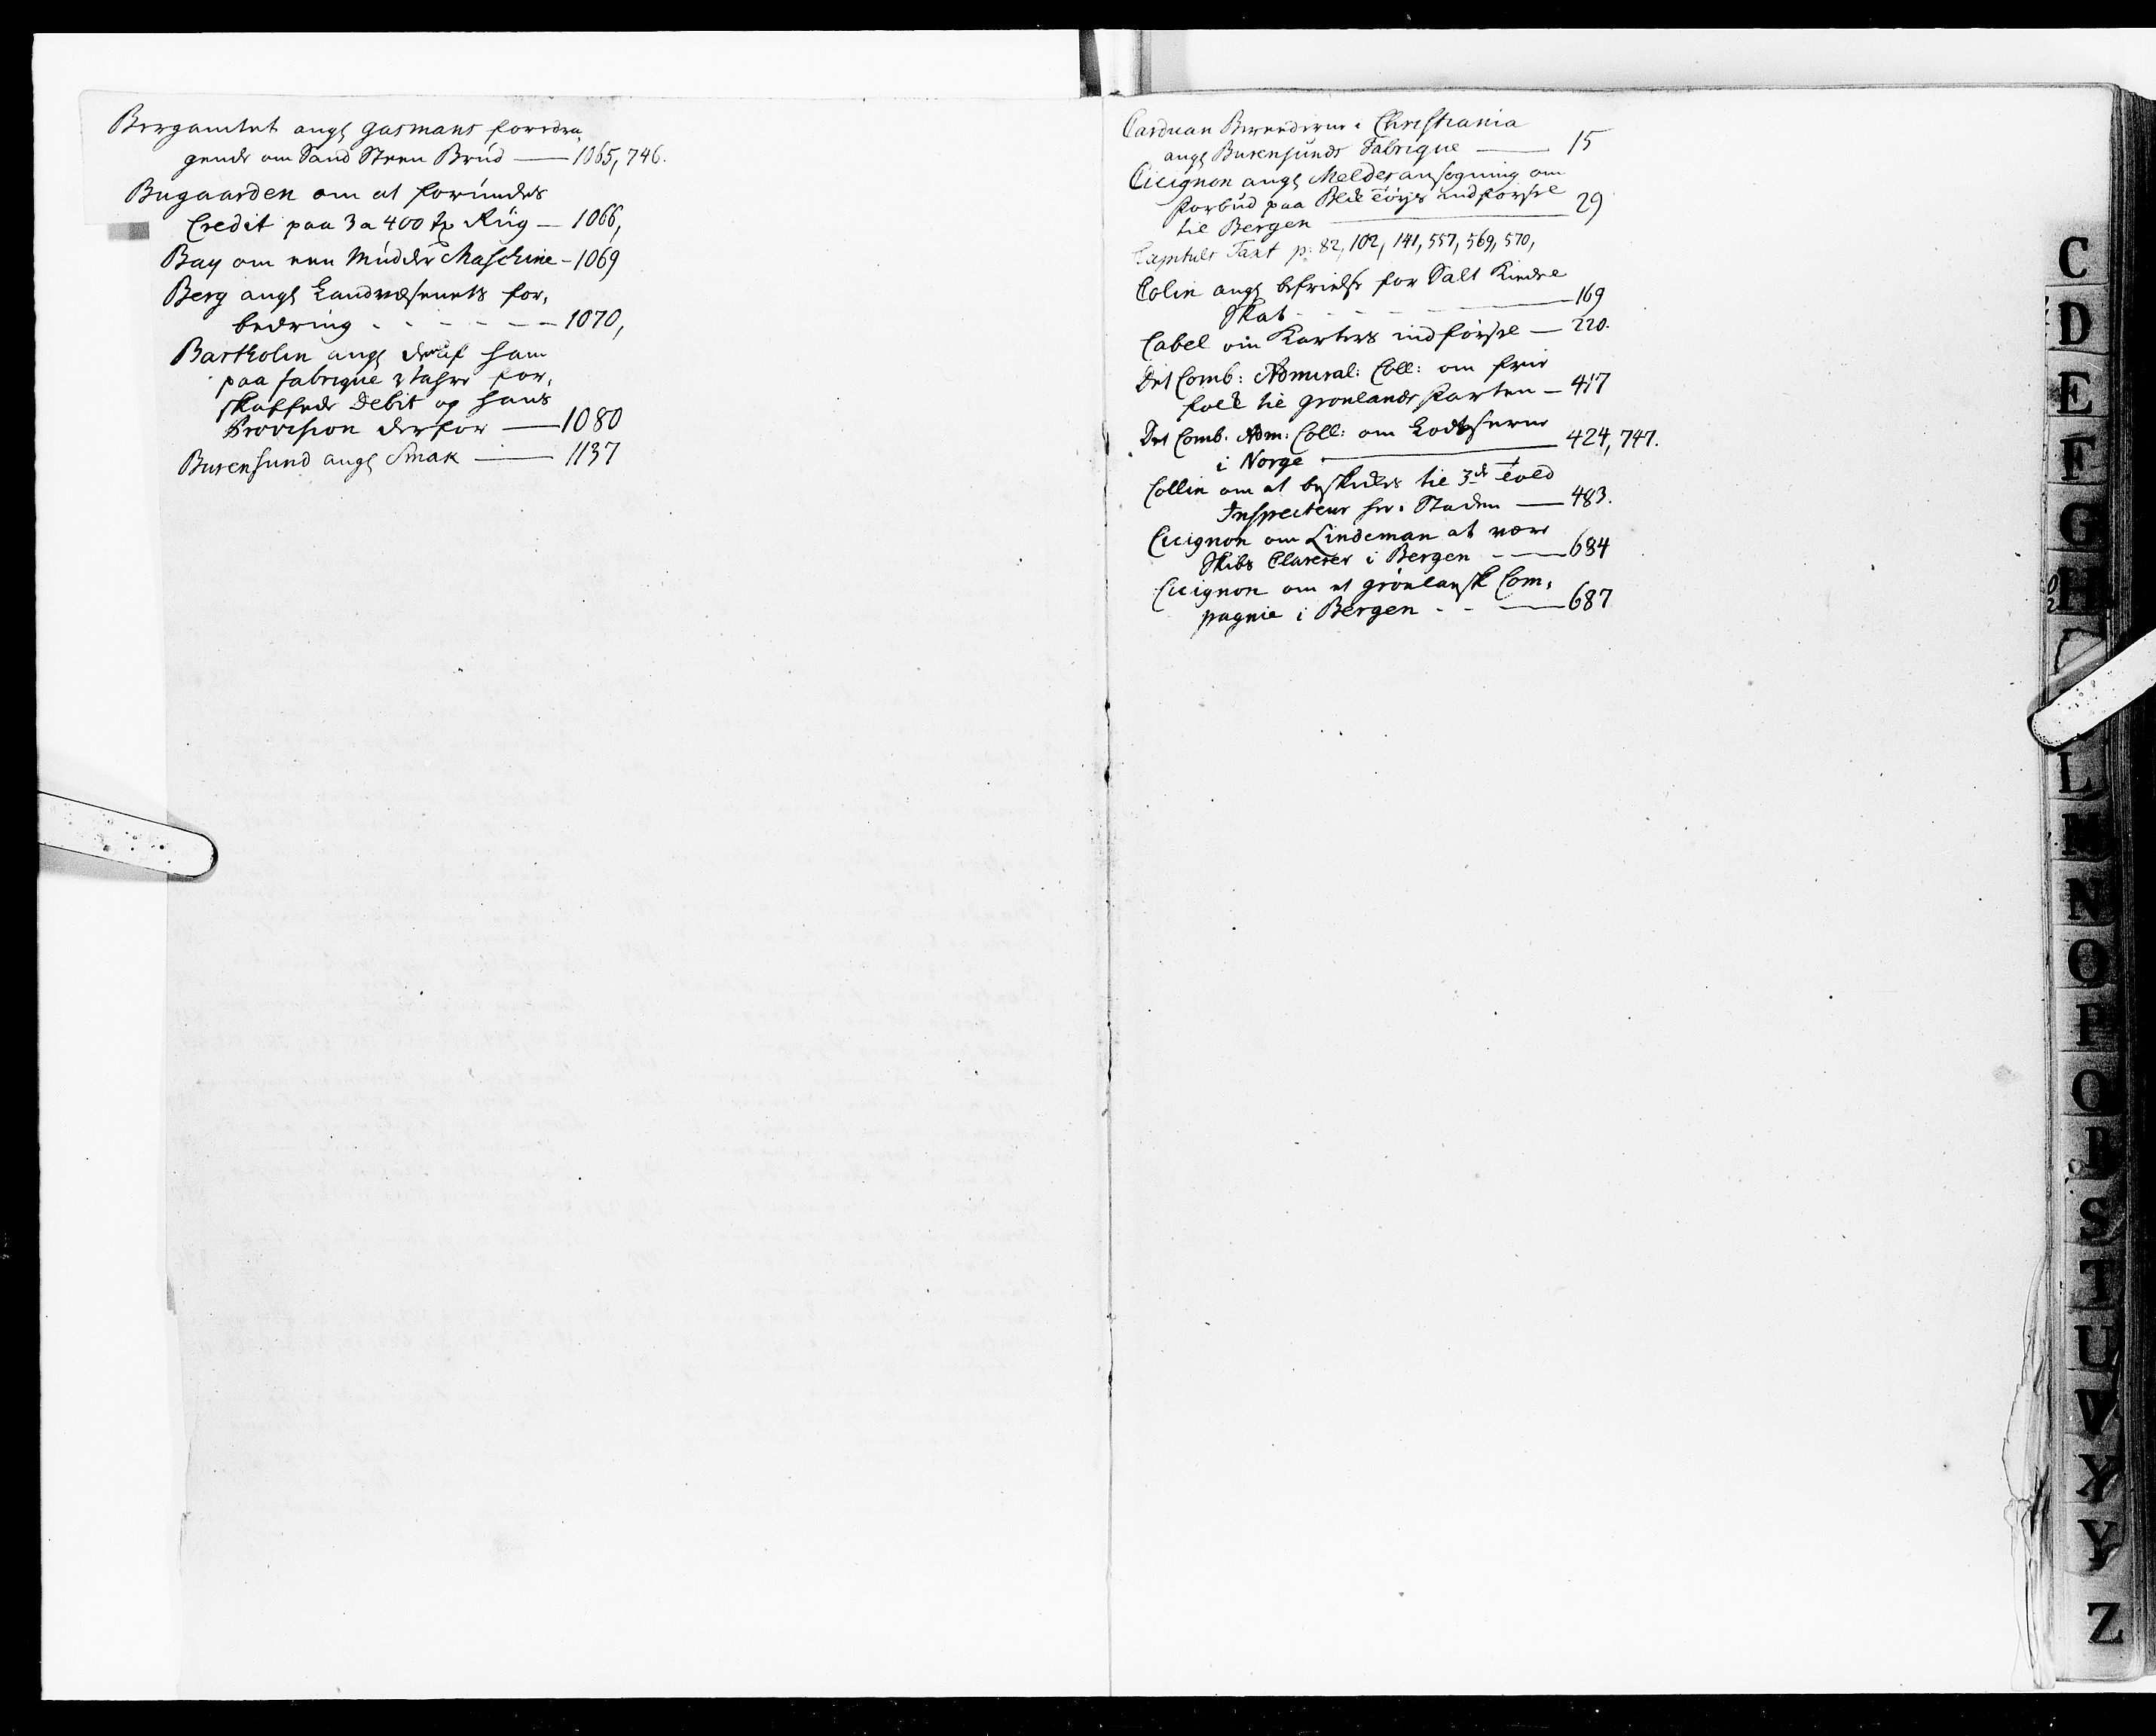 Bergamtet angl Gasmans foredra,
gende om Sand Steen Brud — 1065, 746.
Bugaarden om at forundes
Credit paa 3 a 400 Rug — 1066,
Bay om een Mudder Maschine - 1069
Berg angl Landvæsenets for,
bedring - - - - - 1070,
Bartholin angl ham
paa fabrique for,
skaffede Debit og hans
Provision derfor — 1080
Buxensund angl Smak — 1137
Carduan Bereederne i Christiania
angl Buxensunds Fabrique — 15
Cicignon angl Melders ansøgning om
forbud paa indførsel
til Bergen — 29
Capituls Taxt p: 82, 102, 141, 557, 569, 570,
Colin angl befrielse for Salt Kiedel
Skat - - - - 169
Cabel om Karters indførsel — 220.
Det Comb: Admiral: Coll: om frie
folk til Grønlands farten — 417
Det Comb: Adm: Coll: om Lodserne
i Norge — 424, 747.
Collin om at beskikkes til 3de Told
Inspecteur her i Staden — 483.
Cicignon om Lindeman at være
Skibs Clarerer i Bergen — 684
Cicignon om et grønlansk Com,
pagnie i Bergen - - — 687
C
D
E
F
G
H
L
M
N
O
P
Q
R
S
T
U
V
X
Y
Z